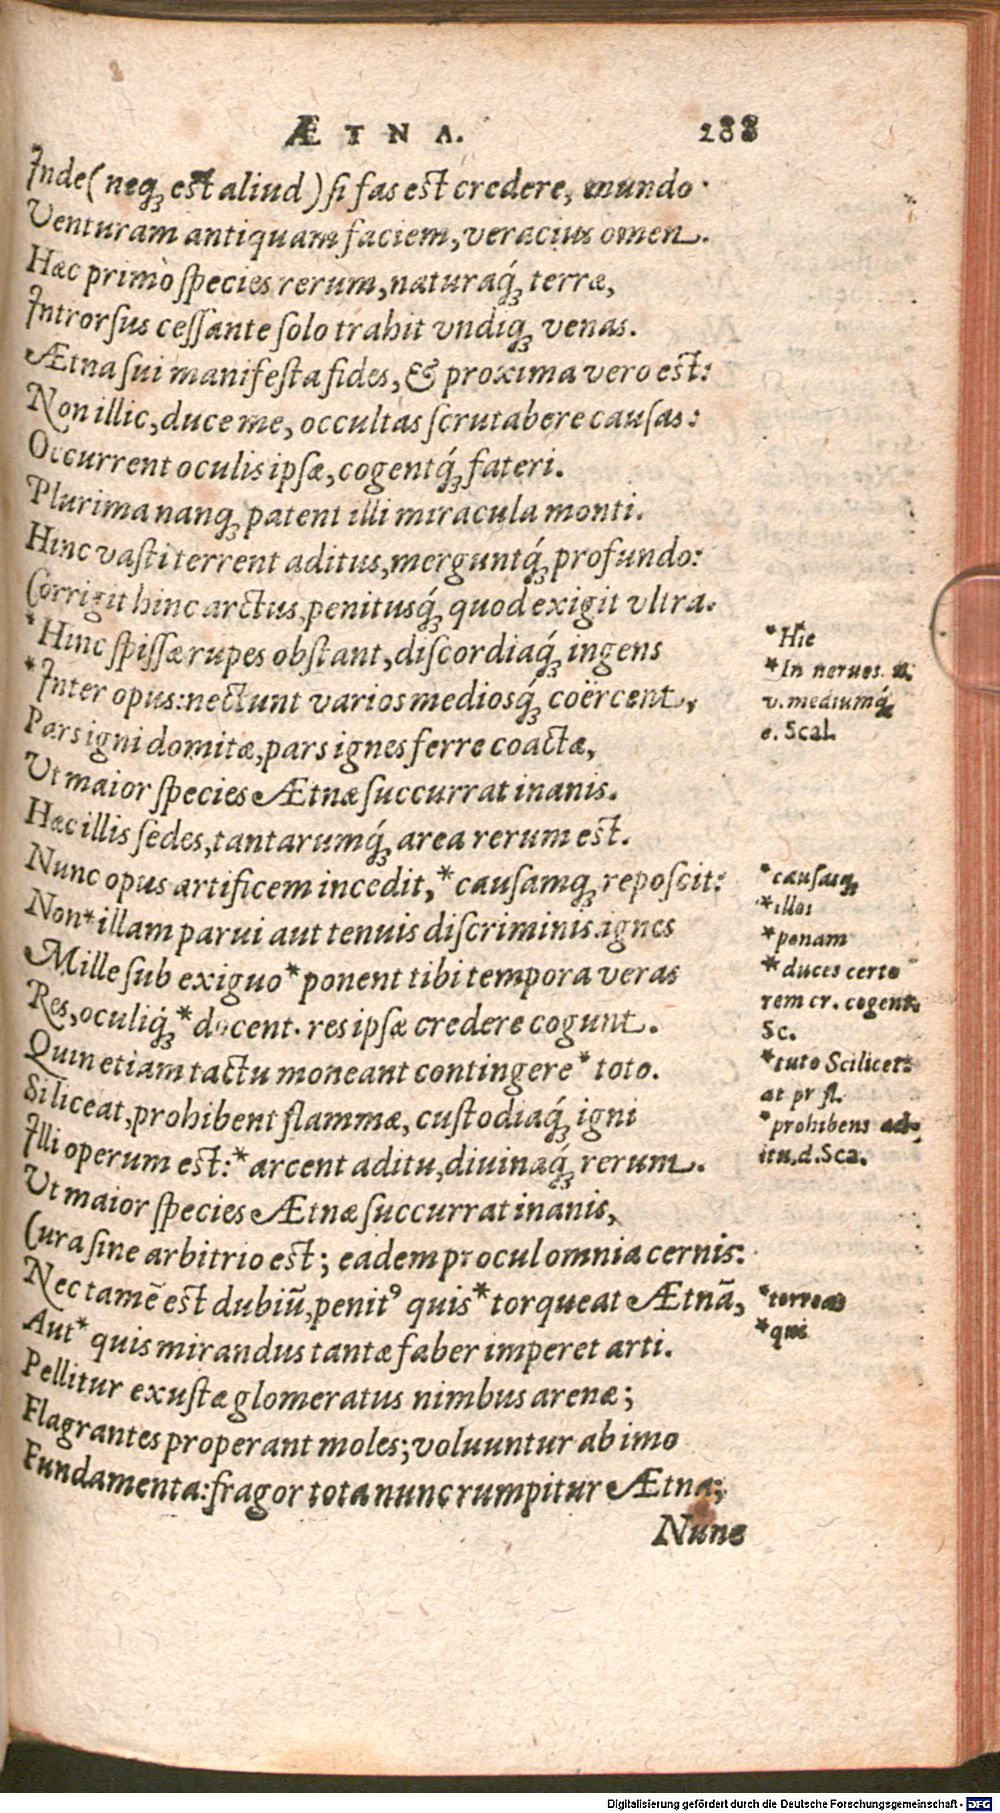 ÆTNA. 288
Inde (neq; est aliud) si fas est credere, mundo
Venturam antiquam faciem, veracius omen.
Hæc primò species rerum, naturaq́; terræ,
Introrsus cessante solo trahit vndiq; venas.
Ætna sui manifesta fides, & proxima vero est:
Non illic, duce me, occultas scrutabere causas:
Occurrent oculis ipsæ, cogentq́; fateri.
Plurima nanq; patent illi miracula monti.
Hinc vasti terrent aditus, merguntq́; profundo:
Corrigit hinc arctus, penitusq́; quod exigit vltra.
*Hinc spissæ rupes obstant, discordiaq́; ingens
*Inter opus: nectunt varios mediosq́; coërcent,
Pars igni domitæ, pars ignes ferre coactæ,
Vt maior species Ætnæ succurrat inanis.
Hæc illis sedes, tantarumq́; area rerum est.
Nunc opus artificem incedit, *causamq; reposcit:
Non *illam parui aut tenuis discriminis ignes
Mille sub exiguo *ponent tibi tempora veras
Res, oculiq́; *docent. res ipsæ credere cogunt.
Quin etiam tactu moneant contingere *toto.
Siliceat, prohibent flammæ, custodiaq́; igni
Illi operum est: *arcent aditu, diuinaq́; rerum.
Vt maior species Ætnæ succurrat inanis,
Cura sine arbitrio est; eadem procul omnia cernis:
Nec tamē est dubiū, penitꝰ quis *torqueat Ætnā,
Aut *quis mirandus tantæ faber imperet arti.
Pellitur exustæ glomeratus nimbus arenæ;
Flagrantes properant moles; voluuntur ab imo
Fundamenta: fragor tota nunc rumpitur Ætna;
Nunc
*Hic
*In nerues.
v. mediumq́;
e. Scal.
*causaq;
*illos
*ponam
*duces certo
rem cr. cogent.
Sc.
*tuto Scilicet:
at pr fl.
*prohibens ad-
itu, d. Sca.
*torreat
*qui
Digitalisierung gefördert durch die Deutsche Forschungsgemeinschaft - DFG